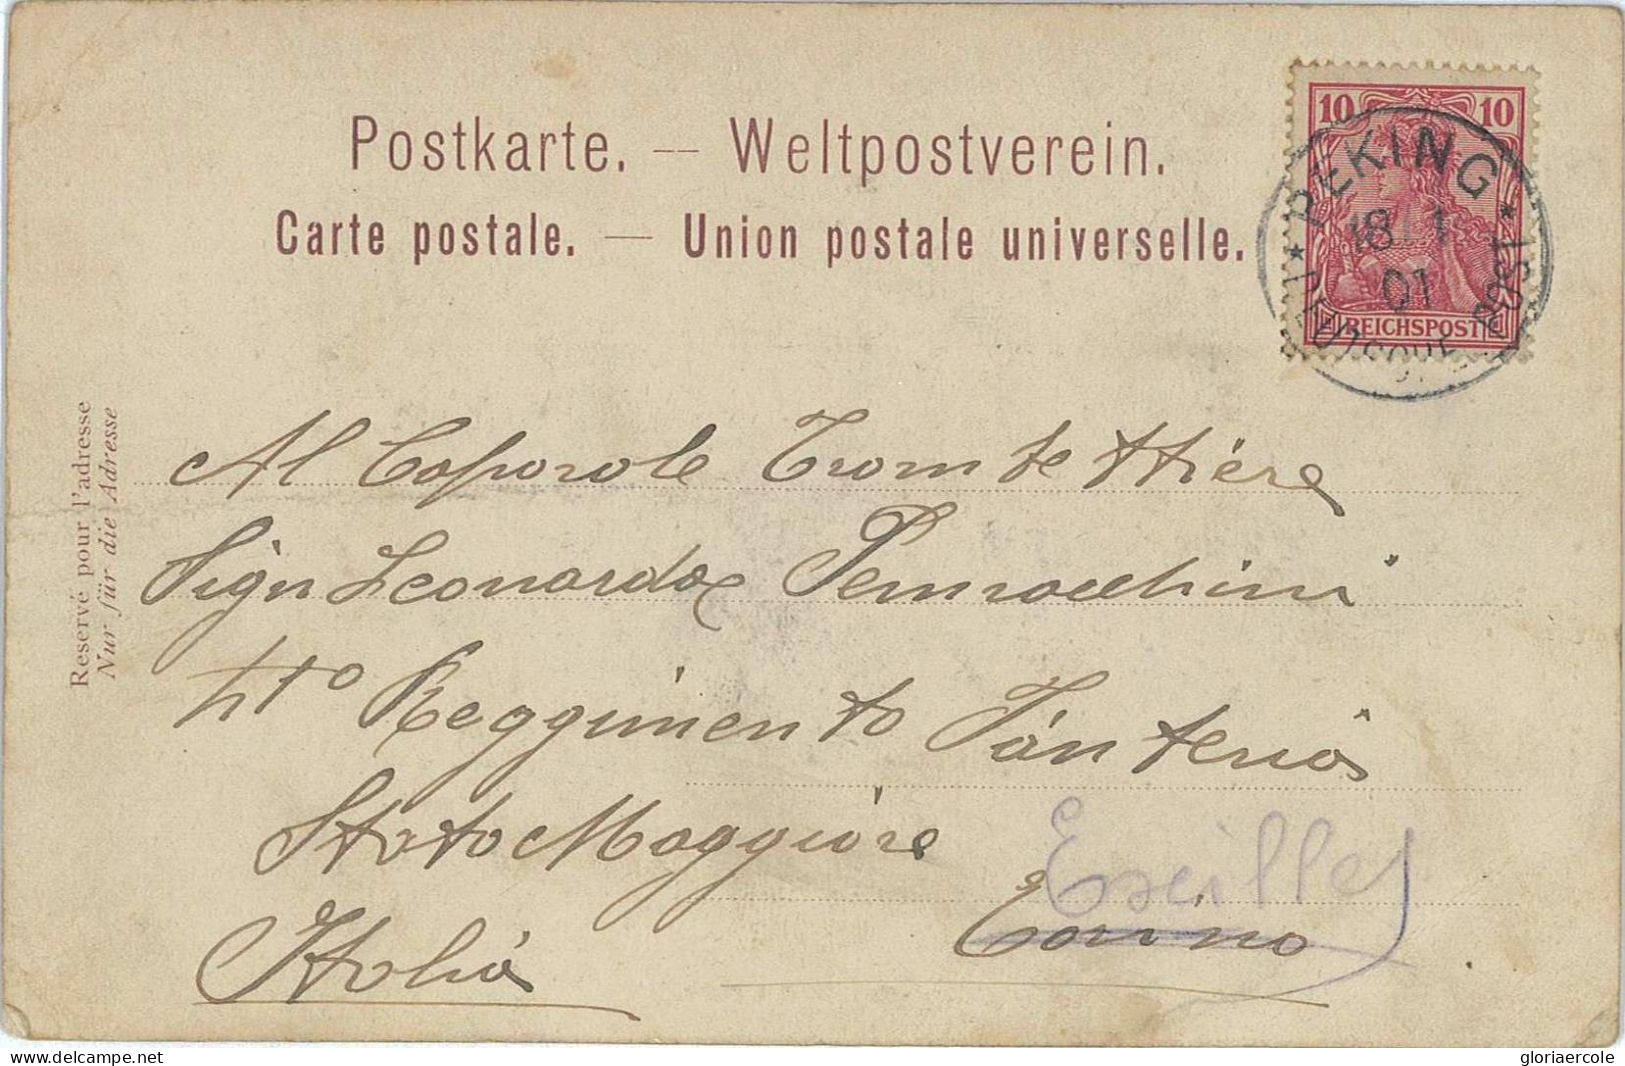 Postkarte. — Weltpostverein.
Carte postale. — Union postale universelle.
10 10
PEKING
18 1
01
DEUTSCHE POST
REICHSPOST
Reservé pour l'adresse
Nur für die Adresse
Al Caporale Trombettiere
Sign Leonardo Pennacchini
41o Reggimento Fanteria
Stato Maggiore
Exilles
Torino
Italia
delcampe.net
gloriaercole